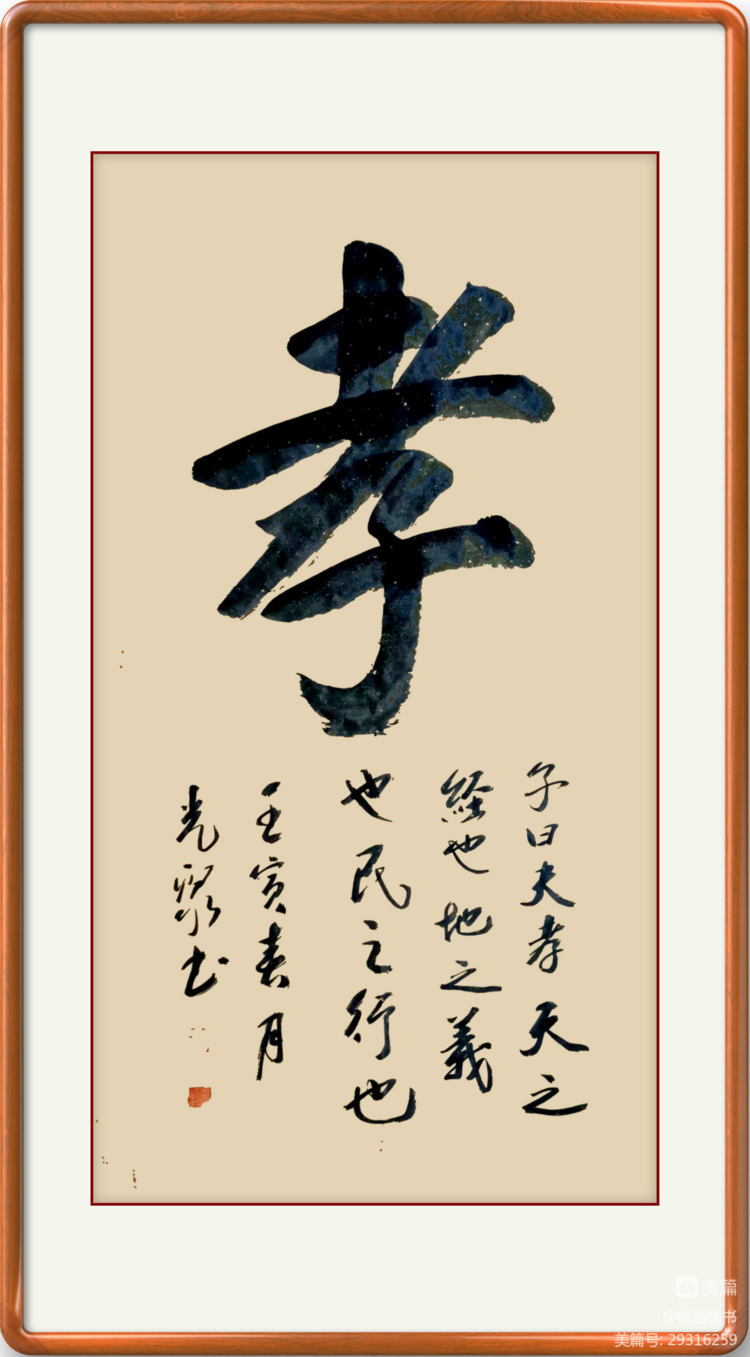 孝
子曰夫孝天之
经也地之義
也民之行也
壬寅春月
光聚书
美篇
美篇号: 29316259